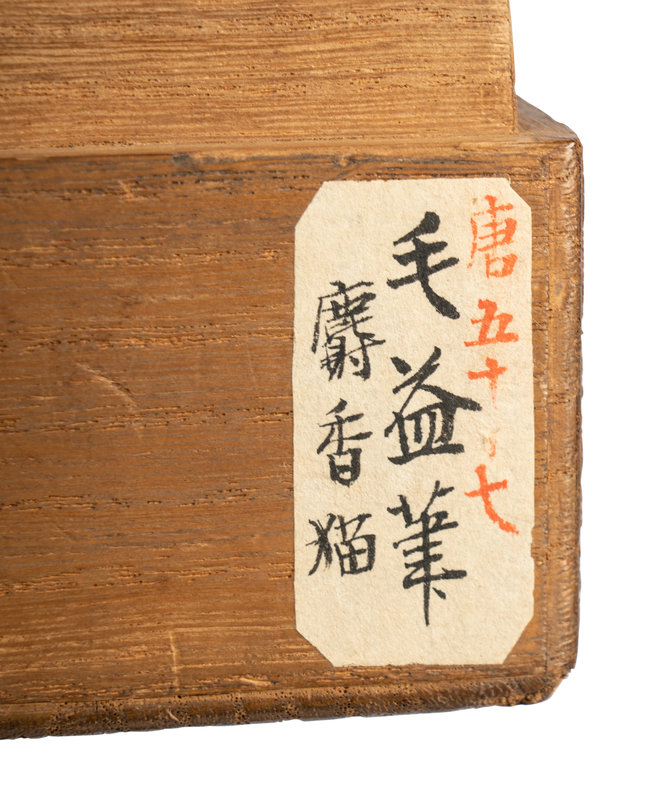 唐五十ノ七
毛益筆
麝香猫